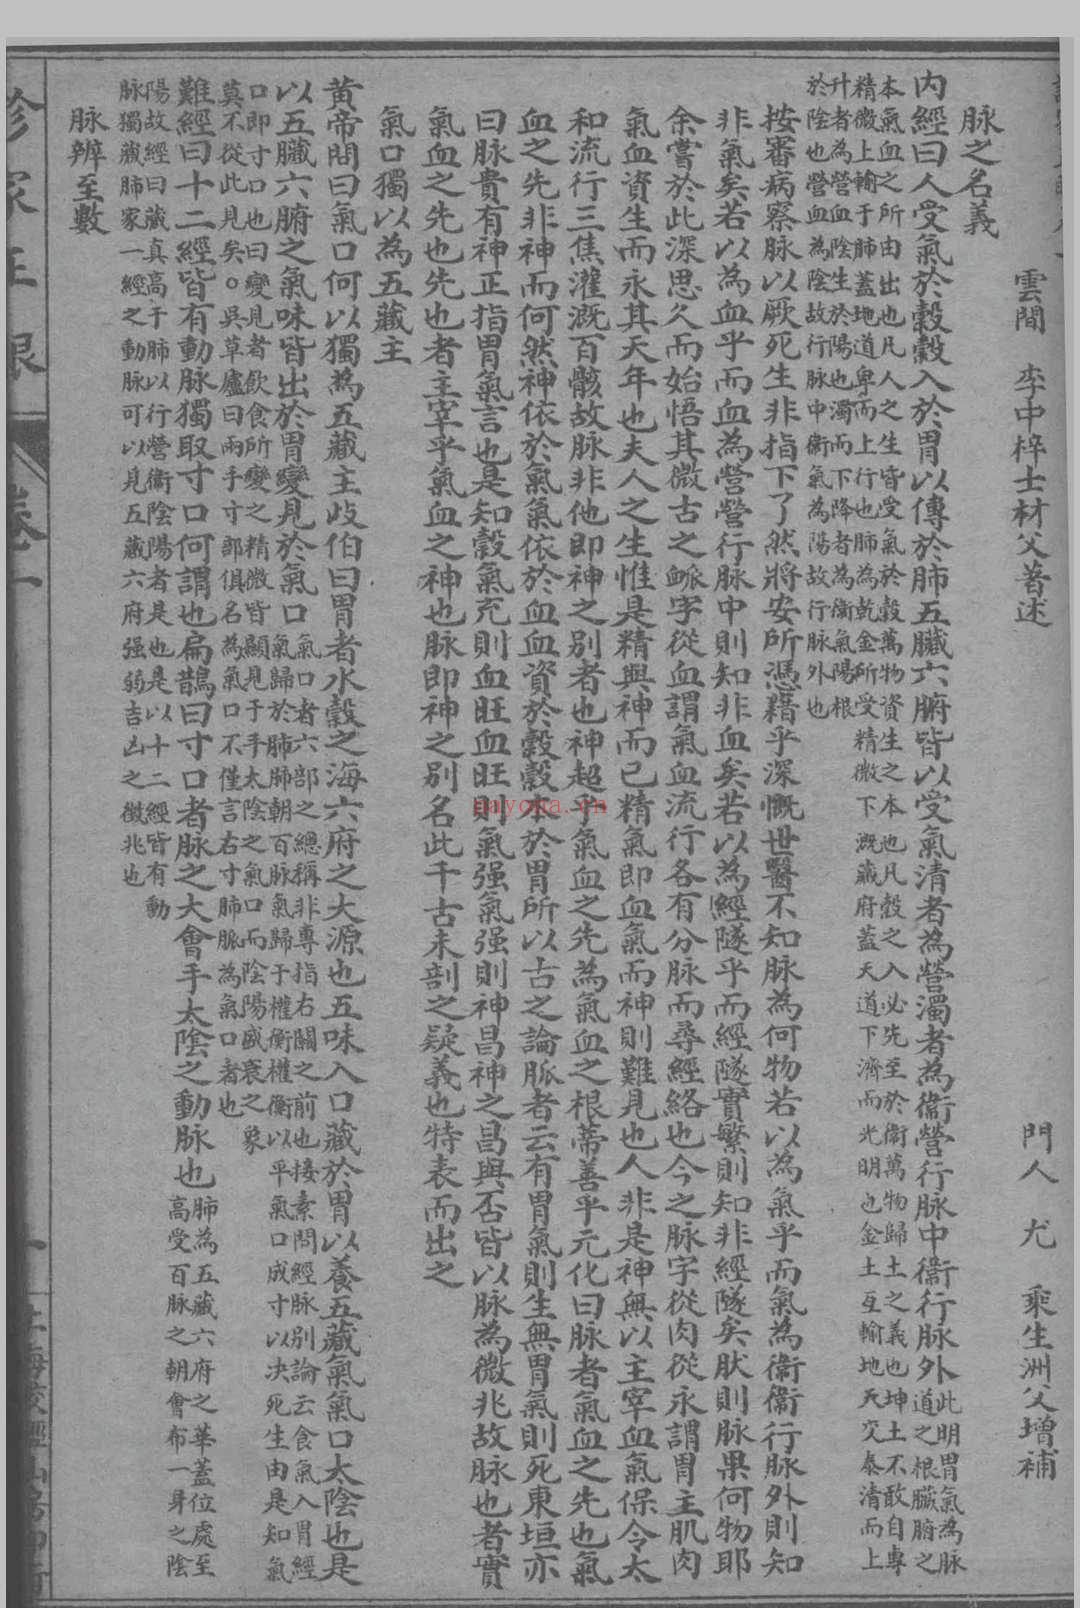 雲間 李中梓士材父著述 門人 尤 乘生洲父增補
脉之名義
內經曰人受氣於穀穀入於胃以傳於肺五臟六腑皆以受氣清者為營濁者為衞營行脉中衞行脉外此明胃氣為脉
道之根臟腑之
本氣血之所由出也凡人之生皆受氣於穀萬物資生之本也凡穀之入必先至於衞萬物歸土之義也坤土不敢自專
精微上輸于肺蓋地道卑而上行也肺為乾金所受精微下溉藏府蓋天道下濟而光明也金土互輸地天交泰清而上
升者為營血陰生於陽也濁而下降者為衞氣陽根
於陰也營血為陰故行脉中衞氣為陽故行脉外也
按審病察脉以厥死生非指下了然將安所憑藉乎深慨世醫不知脉為何物若以為氣乎而氣為衞衞行脉外則知
非氣矣若以為血乎而血為營營行脉中則知非血矣若以為經隧乎而經隧實繁則知非經隧矣肰則脉果何物耶
余嘗於此深思久而始悟其微古之衇字從血謂氣血流行各有分脉而尋經絡也今之脉字從肉從永謂胃主肌肉
氣血資生而永其天年也夫人之生惟是精與神而已精氣即血氣而神則難見也人非是神無以主宰血氣保令太
和流行三焦灌溉百骸故脉非他即神之別者也神超乎氣血之先為氣血之根蒂善乎元化曰脉者氣血之先也氣
血之先非神而何然神依於氣氣依於血血資於穀穀本於胃所以古之論脈者云有胃氣則生無胃氣則死東垣亦
曰脉貴有神正指胃氣言也是知穀氣充則血旺血旺則氣强氣强則神昌神之昌與否皆以脉為微兆故脉也者實
氣血之先也先也者主宰乎氣血之神也脉即神之別名此千古未剖之疑義也特表而出之
氣口獨以為五藏主
黃帝問曰氣口何以獨為五藏主歧伯曰胃者水穀之海六府之大源也五味入口藏於胃以養五藏氣氣口太陰也是
以五臟六腑之氣味皆出於胃變見於氣口氣口者六部之總稱非專指右關之前也按素問經脉別論云食氣入胃經
氣歸於肺肺朝百脉氣歸于權衡權衡以平氣口成寸以决死生由是知氣
口即寸口也曰變見者飲食所變之精微皆顯見于手太陰之氣口而陰陽盛衰之象
莫不從此見矣。吳草廬曰兩手寸部俱名為氣口不僅言右寸肺脈為氣口者也
難經曰十二經皆有動脉獨取寸口何謂也扁鵲曰寸口者脉之大會手太陰之動脉也肺為五藏六府之華蓋位處至
高受百脉之朝會布一身之陰
陽故經曰藏真高于肺以行營衞陰陽者是也是以十二經皆有動
脉獨藏肺家一經之動脉可以見五藏六府强弱吉凶之徵兆也
脉辨至數
nayona.cn